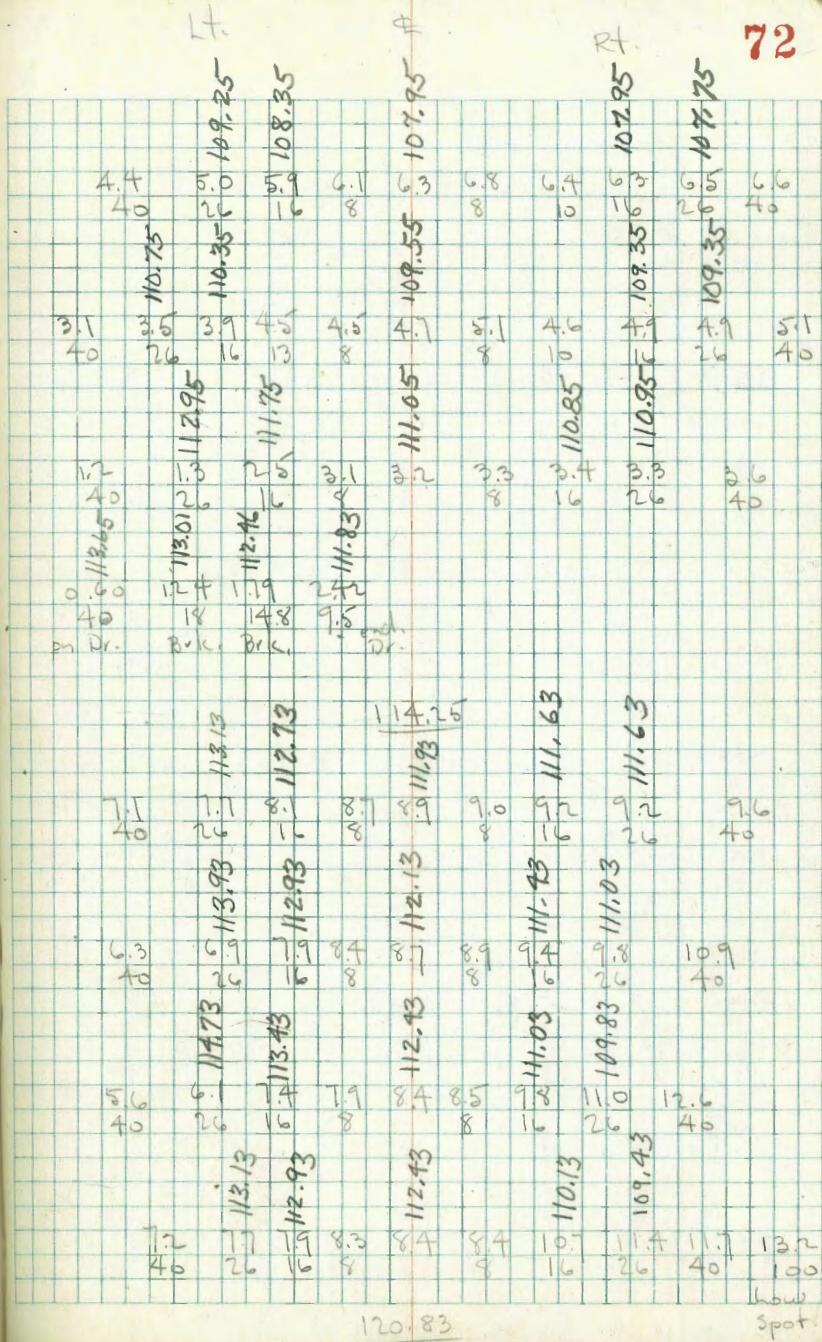 Lt. ⅊ Rt. 72
109.25 108.35 107.95 107.95 107.75
4.4 5.0 5.9 6.1 6.3 6.8 6.4 6.3 6.5 6.6
40 26 16 8 8 10 16 26 40
110.75 110.35 109.55 109.35 109.35
3.1 3.5 3.9 4.5 4.5 4.7 5.1 4.6 4.9 4.9 5.1
40 26 16 13 8 8 10 16 26 40
112.95 111.75 111.05 110.85 110.95
1.2 1.3 2.5 3.1 3.2 3.3 3.4 3.3 3.6
40 26 16 8 8 16 26 40
113.65 113.01 112.46 111.83
0.60 1.24 1.79 2.42
40 18 14.8 9.5
on Dr. Brk. Brk. Dr.
114.25
113.13 112.73 111.93 111.63 111.63
7.1 7.7 8.1 8.7 8.9 9.0 9.2 9.2 9.6
40 26 16 8 8 16 26 40
113.93 112.93 112.13 111.43 111.03
6.3 6.9 7.9 8.4 8.7 8.9 9.4 9.8 10.9
40 26 16 8 8 16 26 40
114.73 113.43 112.43 111.03 109.83
5.6 6.1 7.4 7.9 8.4 8.5 9.8 11.0 12.6
40 26 16 8 8 16 26 40
113.13 112.93 112.43 110.13 109.43
7.2 7.7 7.9 8.3 8.4 8.4 10.7 11.4 11.7 13.2
40 26 16 8 8 16 26 40 100
Low
120.83 Spot